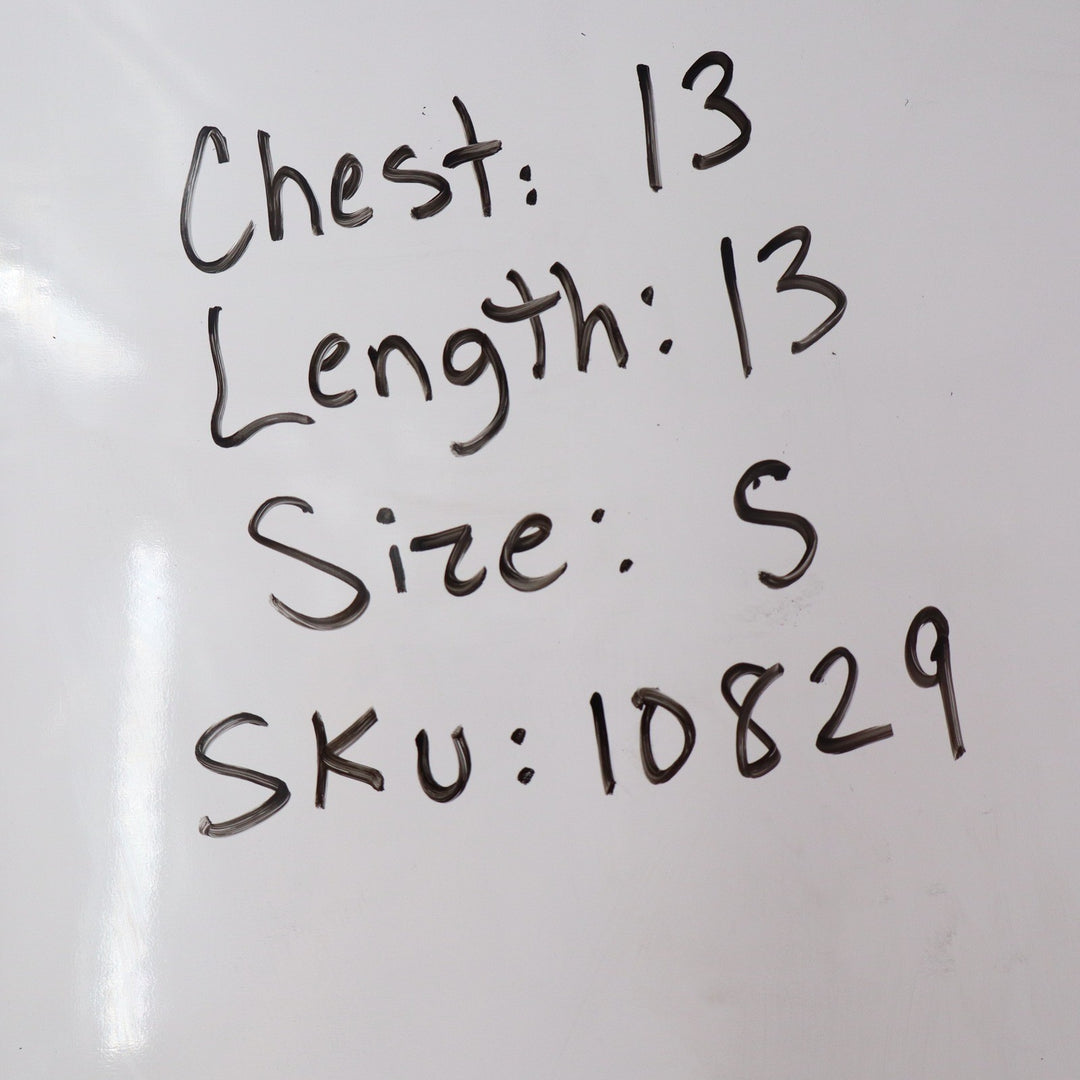 Chest: 13
Length: 13
Size: S
SKU: 10829